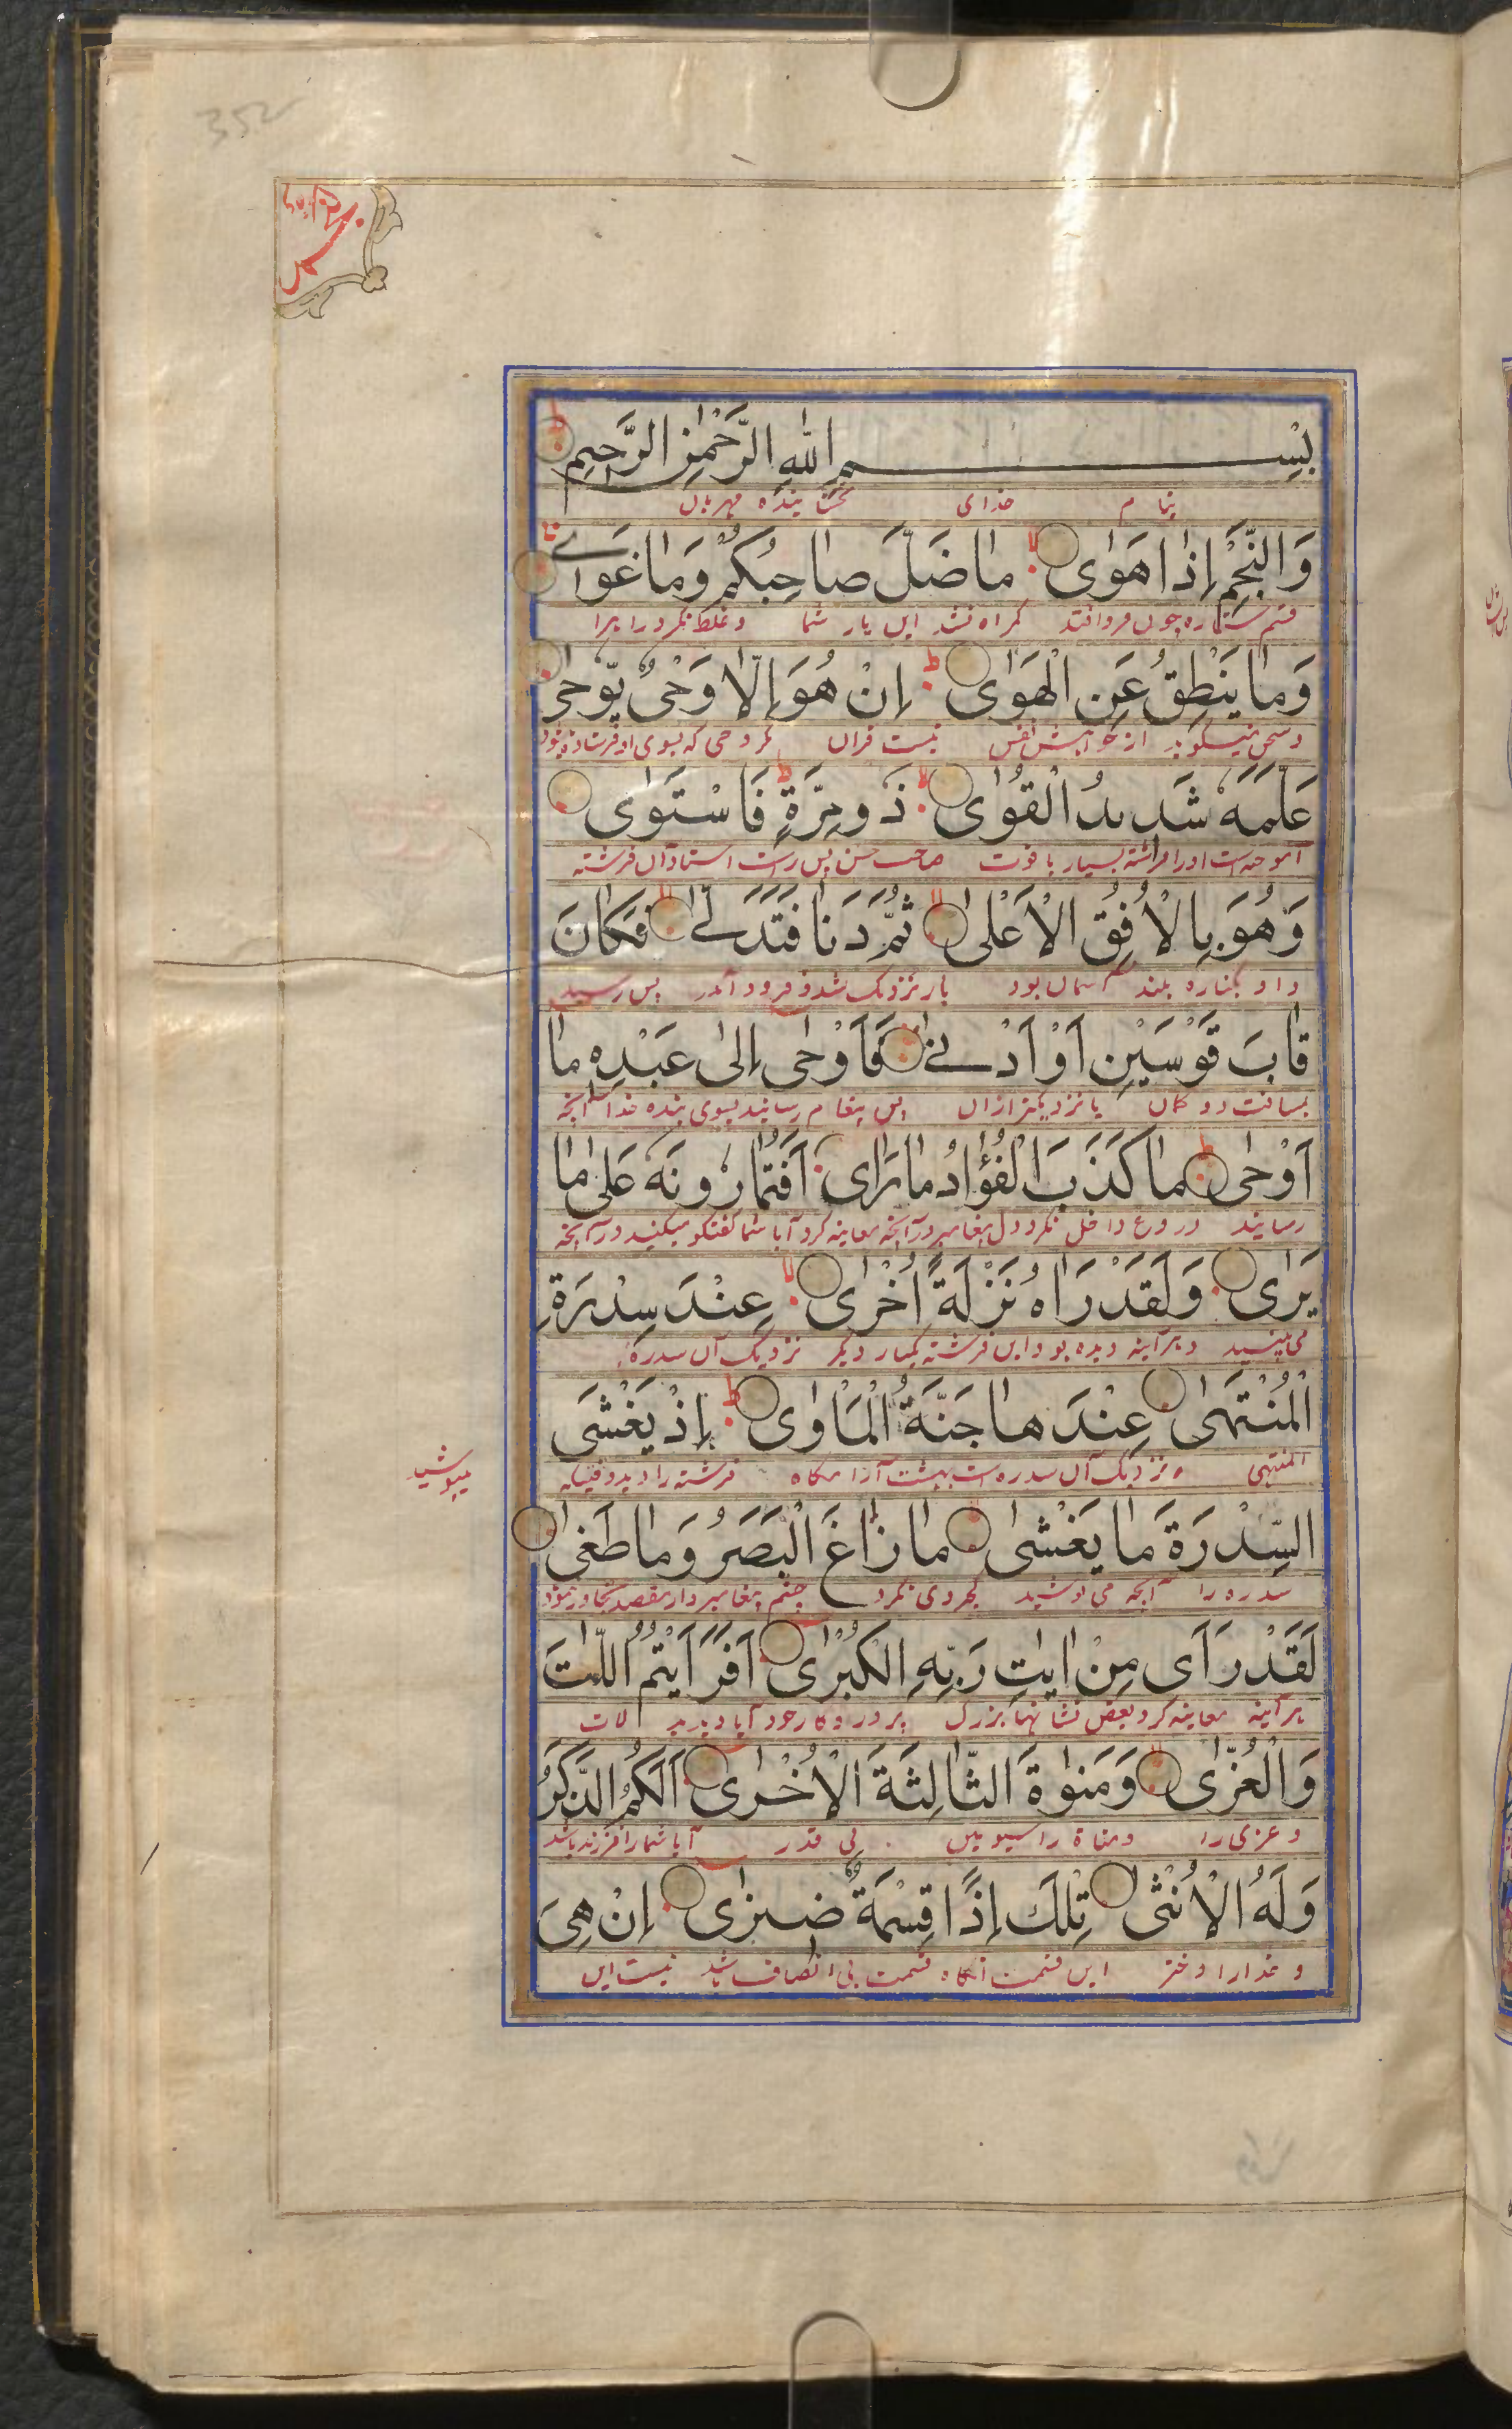 352
بِسْمِ اللّٰهِ الرَّحْمٰنِ الرَّحِيْمِ
بنام خدای بخشاینده مهربان
وَالنَّجْمِ اِذَا هَوٰى مَا ضَلَّ صَاحِبُكُمْ وَمَا غَوٰى
قسم ستاره چون فرو افتد گمراه نشد این یار شما و غلط نکرد راه را
وَمَا يَنْطِقُ عَنِ الْهَوٰى اِنْ هُوَ اِلَّا وَحْىٌ يُّوْحٰى
و سخن نمیگوید از خواهش نفس نیست قرآن مگر وحی که بسوی او فرستاده
عَلَّمَهٗ شَدِيدُ الْقُوٰى ذُو مِرَّةٍ فَاسْتَوٰى
آموخته است او را فرشته بسیار با قوت صاحب حسن پس راست استاد آن فرشته
وَهُوَ بِالْاُفُقِ الْاَعْلٰى ثُمَّ دَنَا فَتَدَلّٰے فَكَانَ
و او بکناره بلند آسمان بود باز نزدیک شد و فرود آمد پس رسید
قَابَ قَوْسَيْنِ اَوْ اَدْنٰے فَاَوْحٰى اِلٰى عَبْدِهٖ مَا
بمسافت دو کمان یا نزدیکتر ازان پس پیغام رسانید بسوی بنده خدا آنچه
اَوْحٰى مَا كَذَبَ الْفُؤَادُ مَا رَاٰى اَفَتُمَارُونَهٗ عَلٰى مَا
رسانید دروغ داخل نکرد دل پیغامبر در آنچه معاینه کرد آیا شما گفتگو میکنید در آنچه
يَرٰى وَلَقَدْ رَاٰهُ نَزْلَةً اُخْرٰى عِنْدَ سِدْرَةِ
می بیند و هر آینه دیده بود این فرشته یکبار دیگر نزدیک آن سدرة
الْمُنْتَهٰى عِنْدَهَا جَنَّةُ الْمَاْوٰى اِذْ يَغْشَى
المنتهی نزدیک آن سدره است بهشت آرامگاه فرشته را دید وقتیکه
میپوشید
السِّدْرَةَ مَا يَغْشٰى مَا زَاغَ الْبَصَرُ وَمَا طَغٰى
سدره را آنچه می پوشید کجروی نکرد چشم پیغامبر و از مقصد تجاوز ننمود
لَقَدْ رَاٰى مِنْ اٰيٰتِ رَبِّهِ الْكُبْرٰى اَفَرَاَيْتُمُ اللّٰتَ
هر آینه معاینه کرد بعض نشانهاء بزرگ پروردگار خود آیا دیدید لات
وَالْعُزّٰى وَمَنٰوةَ الثَّالِثَةَ الْاُخْرٰى اَلَكُمُ الذَّكَرُ
و عزی را و مناة را سیومین بی قدر آیا شما را فرزند باشد
وَلَهُ الْاُنْثٰى تِلْكَ اِذًا قِسْمَةٌ ضِيزٰى اِنْ هِىَ
و خدا را دختر این قسمت آنگاه قسمت بی انصاف باشد نیست این